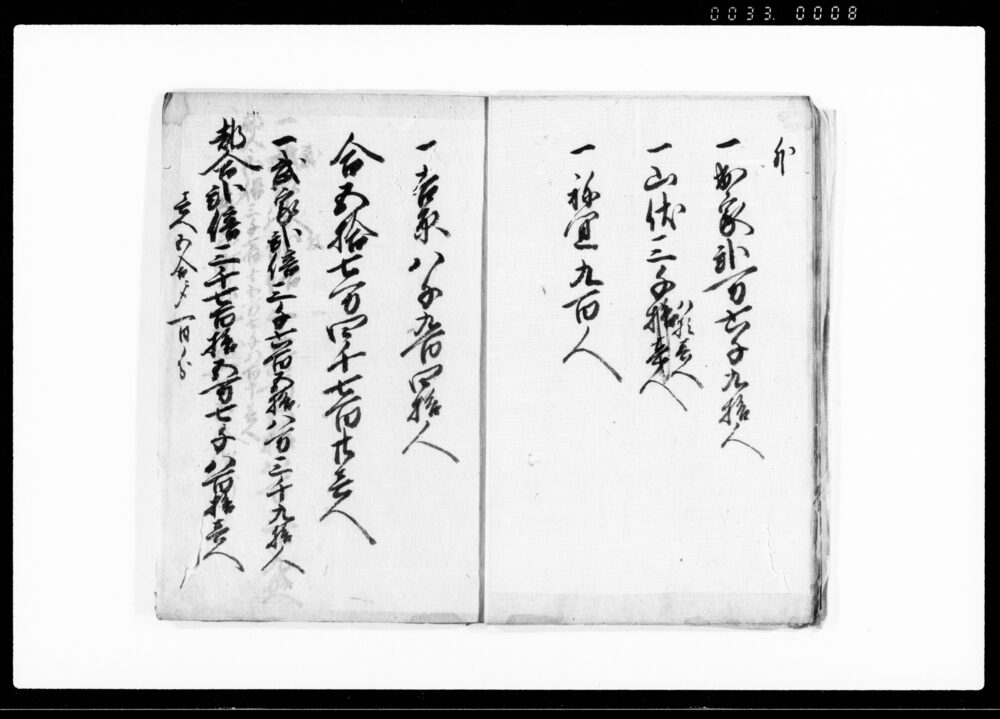 0033.0008
一出家弐万六千九拾人
一山伏三千
八拾壱人
一祢宜九百人
一吉衆八千九百四拾人
合五拾七万四千七百廿壱人
一武家弐億三千六百五拾八万三千九拾人
都合弐億三千七百拾五万七千八百拾壱人
壱人